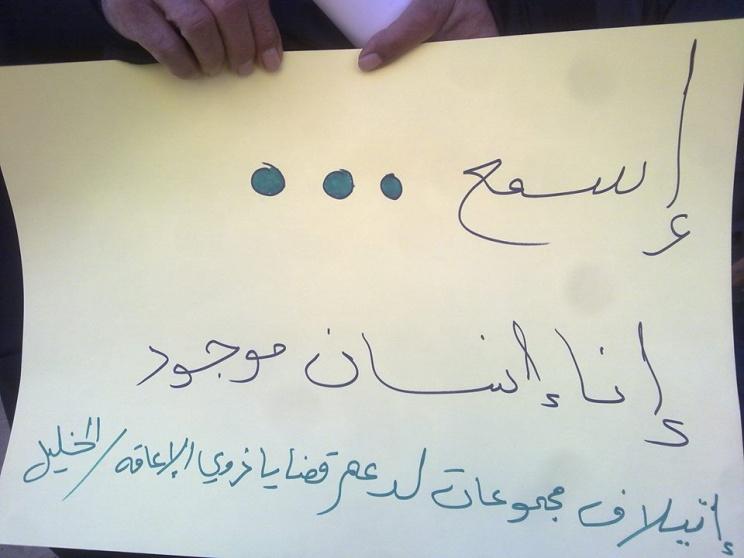 إسمع ...
إنا إنسان موجود
إتيلاف مجموعات لدعم قضايا ذوي الإعاقه / الخليل